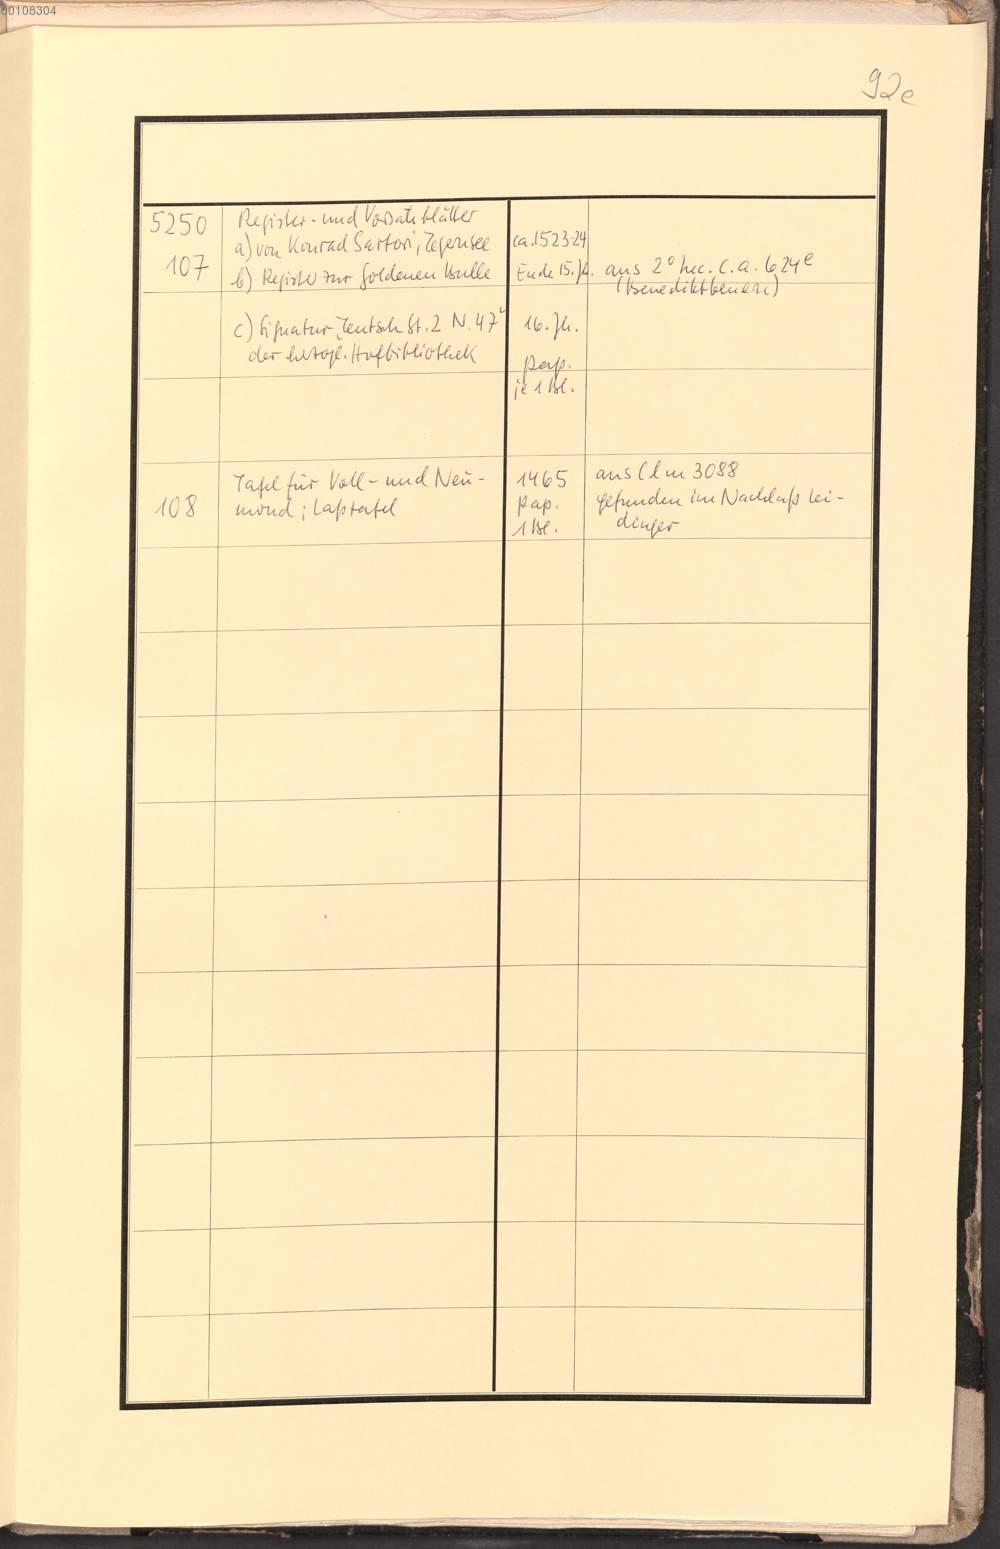 00108304
92e
5250 Register- und Vorsatzblätter
a) von Konrad Sartori, Tegernsee ca. 1523-24
107 b) Register zur Goldenen Bulle Ende 15. Jh. aus 2° Inc. c. a. 624e
(Benediktbeuern)
c) Signatur „Teutsch St. 2 N. 47" 16. Jh.
der herzogl. Hofbibliothek
Pap.
je 1 Bl.
Tafel für Voll- und Neu- 1465 aus Clm 3088
108 mond; Laßtafel Pap. gefunden im Nachlaß Lei-
1 Bl. dinger